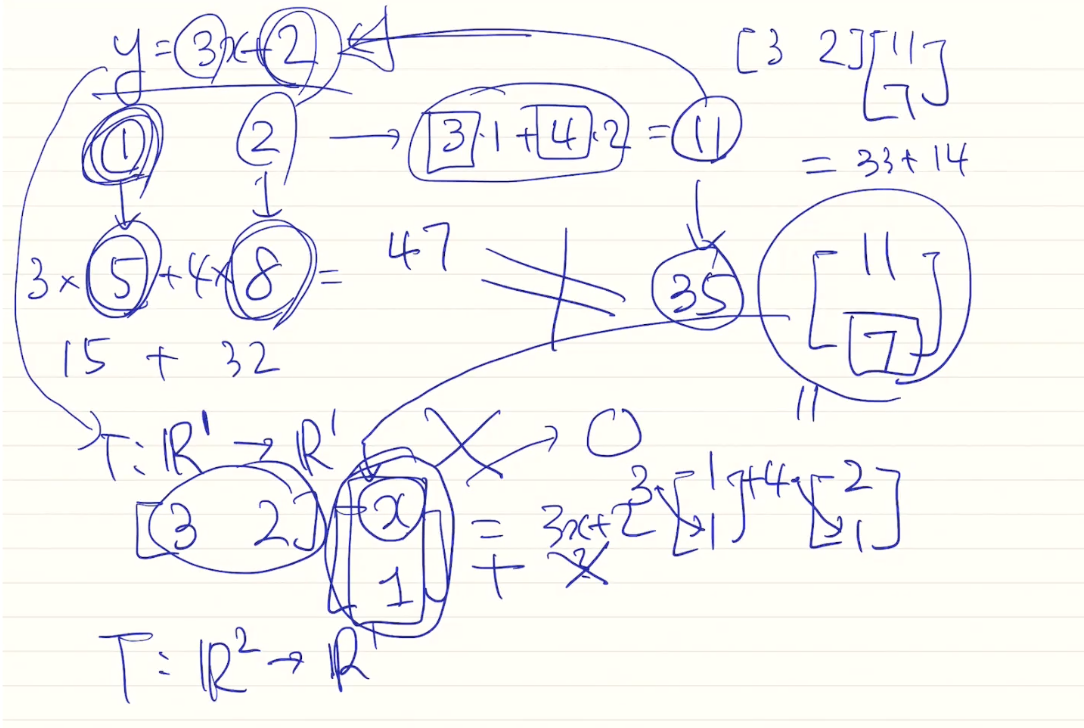 y = 3x + 2
[3 2] [11 7]
1 2 → 3·1 + 4·2 = 11
= 33 + 14
3 × 5 + 4 × 8 = 47 ≠ 35
[11 7]
15 + 32
=
T: ℝ¹ → ℝ¹
0
[3 2] [x 1] = 3x + 2
3·[1 1] + 4·[2 1]
+
T: ℝ² → ℝ¹